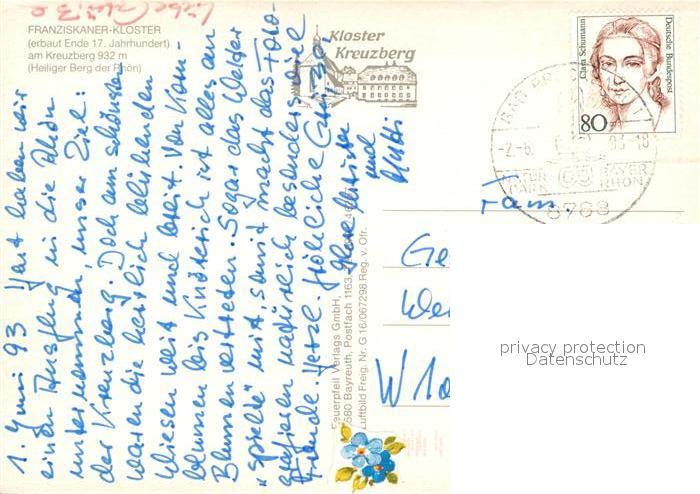 Liebe
FRANZISKANER-KLOSTER
(erbaut Ende 17. Jahrhundert)
am Kreuzberg 932 m
(Heiliger Berg der Rhön)
Kloster
Kreuzberg
Clara Schumann
Deutsche Bundespost
80
NATUR PARK
BAYER. RHÖN
8788
1. Juni 93 Heut haben wir
einen Ausflug in die Rhön
unternommen, unser Ziel:
der Kreuzberg. Doch am schönsten
waren die herrlich blühenden
Wiesen weit und breit. Von
bis Knöterich ist alles an
Blumen vertreten. Sogar das Wetter
"spielte" mit, somit macht das Foto-
grafieren natürlich besonders viel
Freude. Herzl. fröhliche Grüße,
und
Mutti
Fam.
Ge
We
W 10
Feuerpfeil Verlags GmbH,
8580 Bayreuth, Postfach 1163,
Luftbild Freig. Nr. G 16/067298 Reg. v. Ofr.
privacy protection
Datenschutz